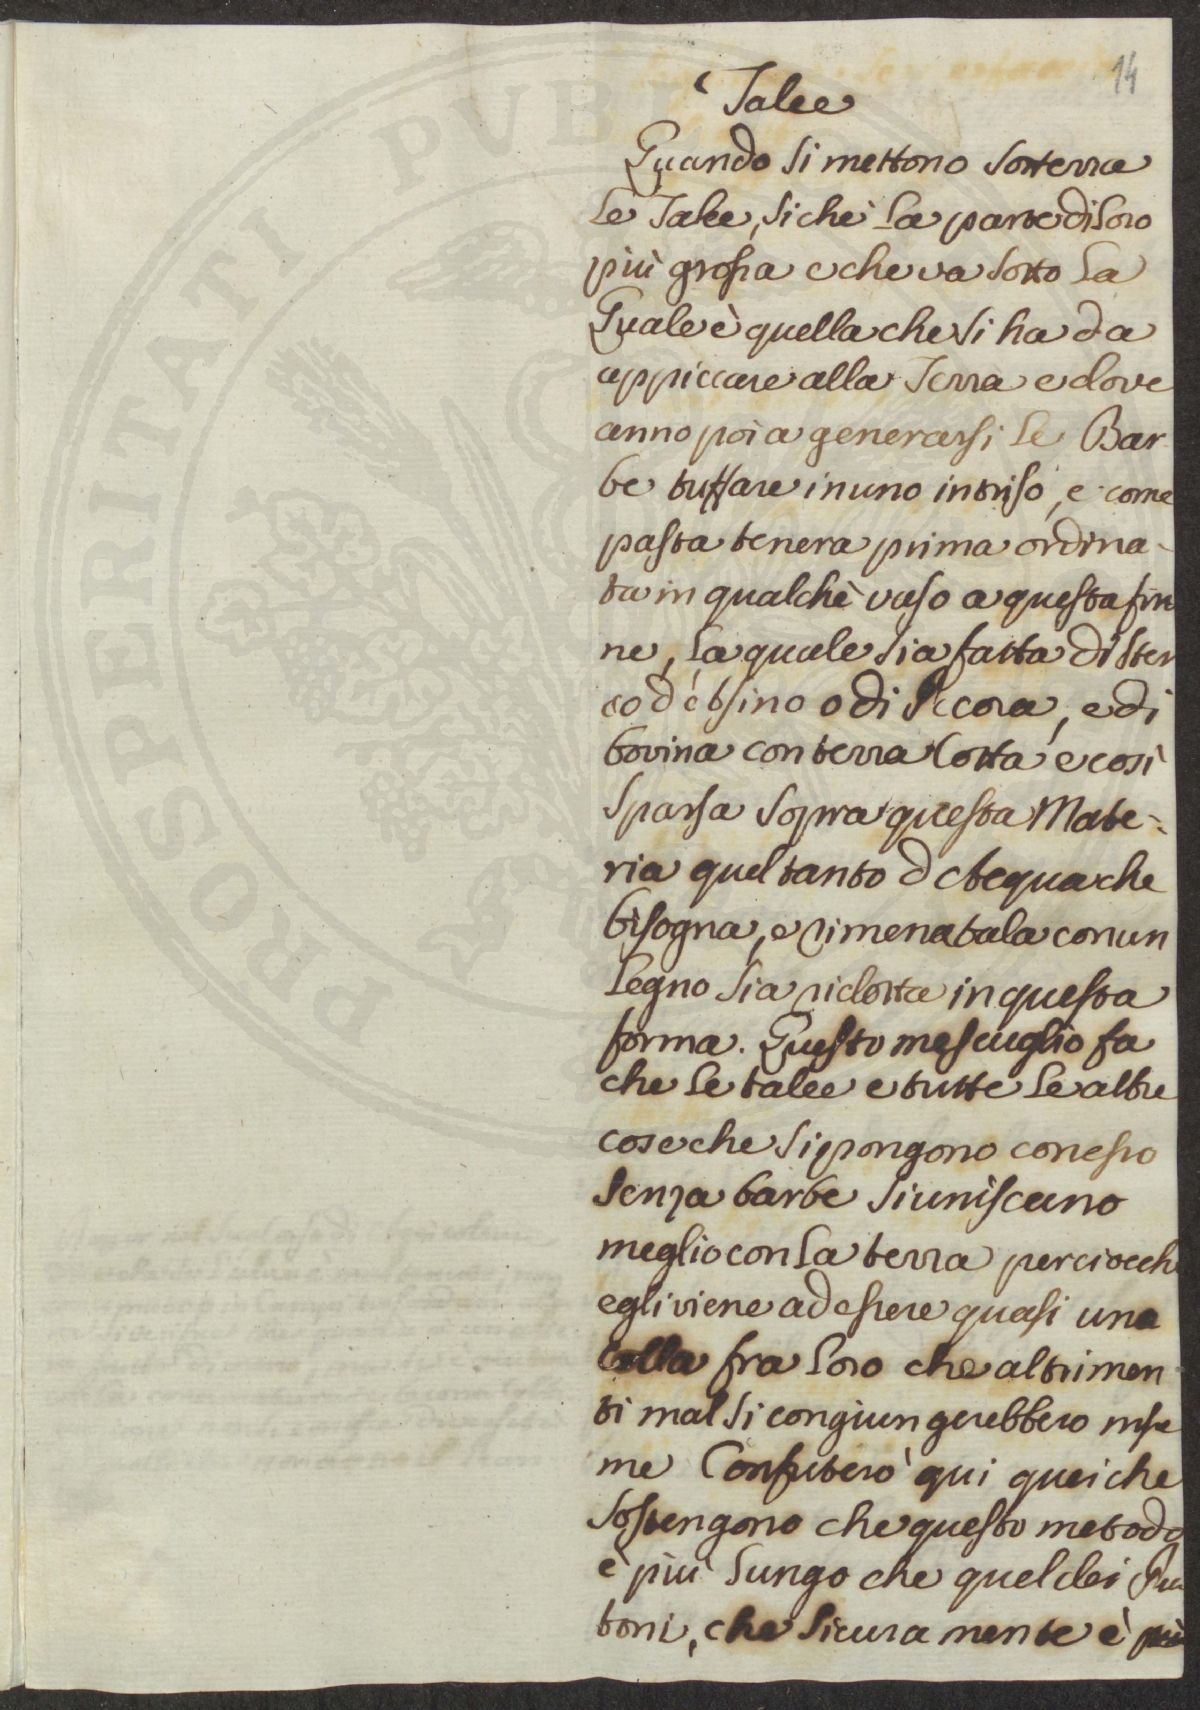 14
Talee
Quando si mettono sotterra
le Talee, si che la parte di loro
più grossa e che va sotto la
Quale è quella che si ha da
appiccare alla Terra e dove
anno poi a generarsi le Bar
be tuffare in uno intriso, e come
pasta tenera prima ordina-
ta in qualchè vaso a questa fin
ne, la quale sia fatta di Ster
co d'Asino o di Pecora, e di
bovina con terra Cotta e così
Sparsa sopra questa Mate-
ria quel tanto d'Acqua che
bisogna, e rimenatala con un
Legno sia ridotta in questa
forma. Questo mescuglio fa
che le talee e tutte le altre
cose che si pongono con esso
senza barbe si uniscano
meglio con la terra perciocch
egli viene ad essere quasi una
Colla fra loro che altrimen
ti mal si congiungerebbero insie
me Confuterò qui quei che
sostengono che questo metodo
è più lungo che quel dei Pian
toni, che sicuramente è più
PROSPERITATI PVBL